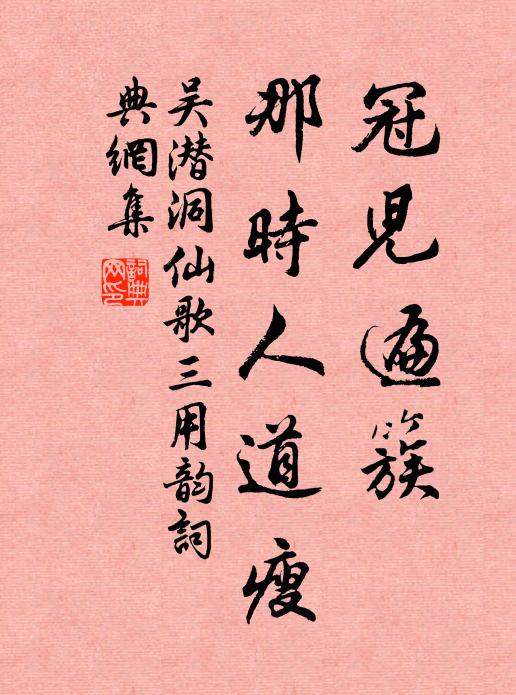 冠児遍簇
那時人道瘦
吴潜洞仙歌三用韵詞
典網集
詞典網印